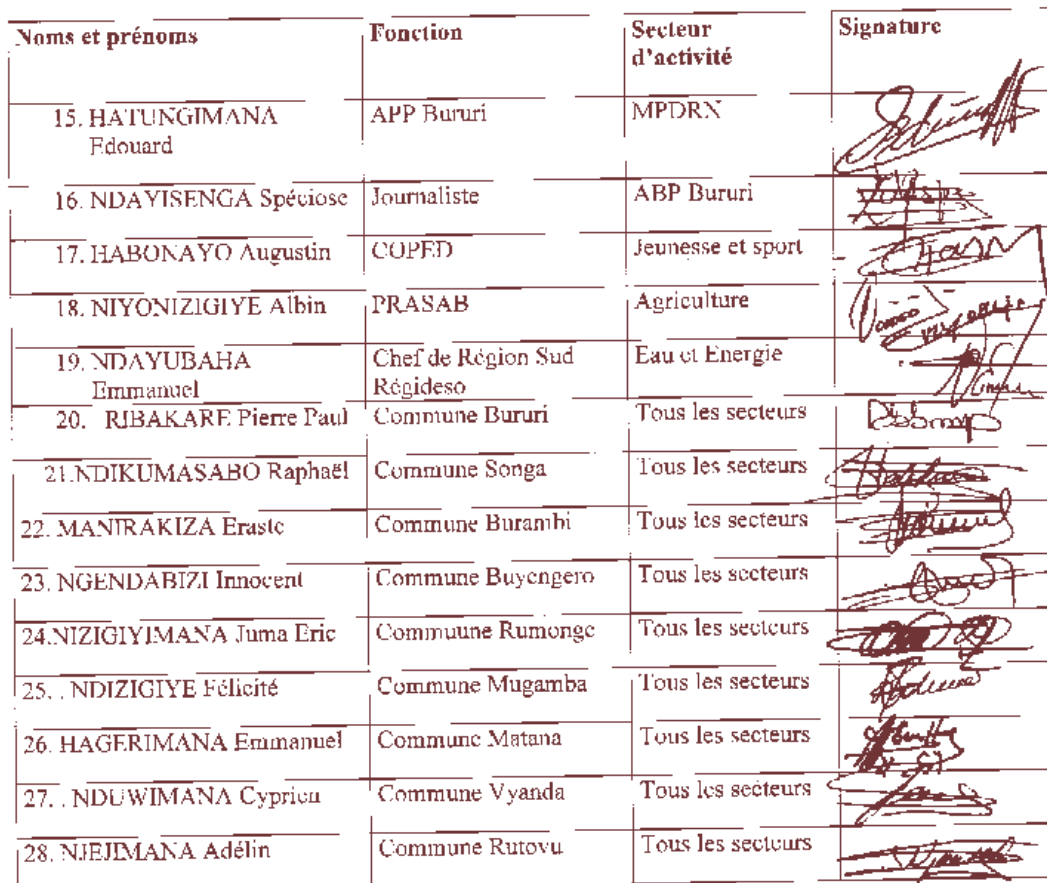 Noms et prénoms Fonction Secteur d'activité Signature
15. HATUNGIMANA Edouard APP Bururi MPDRN
16. NDAYISENGA Spéciose Journaliste ABP Bururi
17. HABONAYO Augustin COPED Jeunesse et sport
18. NIYONIZIGIYE Albin PRASAB Agriculture
19. NDAYUBAHA Emmanuel Chef de Région Sud Régideso Eau et Energie
20. RIBAKARE Pierre Paul Commune Bururi Tous les secteurs
21.NDIKUMASABO Raphaël Commune Songa Tous les secteurs
22. MANIRAKIZA Eraste Commune Burambi Tous les secteurs
23. NGENDABIZI Innocent Commune Buyengero Tous les secteurs
24.NIZIGIYIMANA Juma Eric Commune Rumonge Tous les secteurs
25. . NDIZIGIYE Félicité Commune Mugamba Tous les secteurs
26. HAGERIMANA Emmanuel Commune Matana Tous les secteurs
27. . NDUWIMANA Cyprien Commune Vyanda Tous les secteurs
28. NJEJIMANA Adélin Commune Rutovu Tous les secteurs